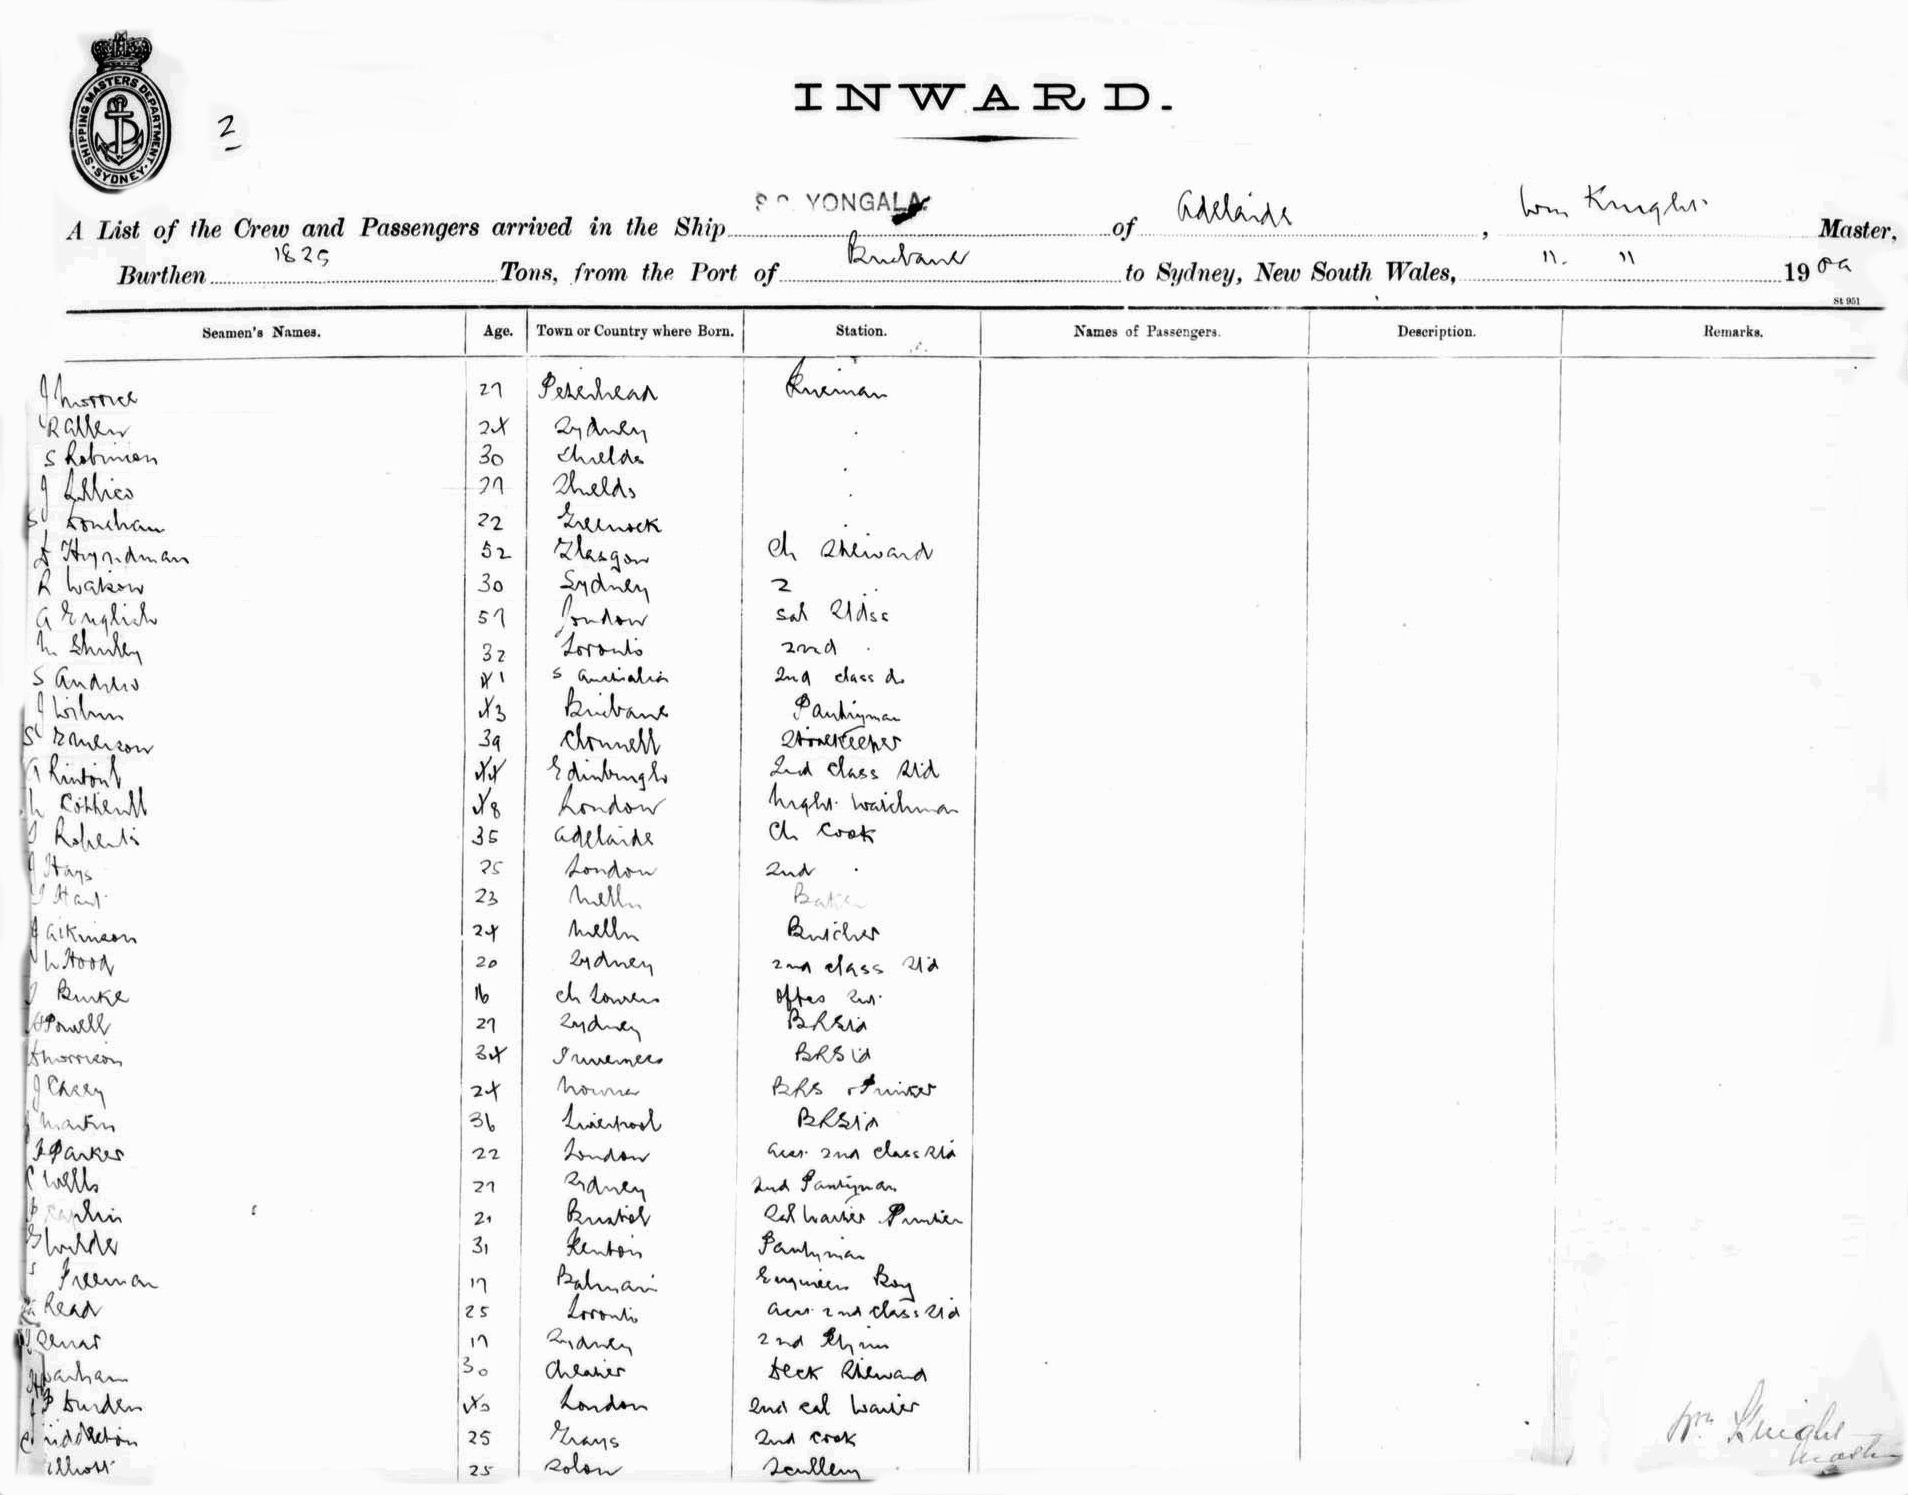 SHIPPING MASTERS DEPARTMENT
SYDNEY
2
INWARD.
A List of the Crew and Passengers arrived in the Ship S.S. YONGALA of Adelaide, Wm Knight Master,
Burthen 1825 Tons, from the Port of Brisbane to Sydney, New South Wales, " " 1909
St 951
Seamen's Names. Age. Town or Country where Born. Station. Names of Passengers. Description. Remarks.
J Morrice 27 Peterhead Fireman
R Allen 24 Sydney
S Robinson 30 Shields
J 27 Shields
22 Greenock
D Hyndman 52 Glasgow Ch Steward
R Watson 30 Sydney 2
A English 57 London Sal Stdss
M Shirley 32 Toronto 2nd
S Andrew 41 S Australia 2nd class do
J Wilson 43 Brisbane Pantryman
S Emerson 39 Clonmell Storekeeper
A Rintoul 44 Edinburgh 2nd class Std
48 London Night Watchman
Roberts 35 Adelaide Ch Cook
J Hays 25 London 2nd
Hart 23 Melbn Baker
J Atkinson 24 Melbn Butcher
W Hood 20 Sydney 2nd class Std
J Burke 16 Ch Towers
Powell 27 Sydney BRStd
D Morrison 34 Inverness BRStd
J Casey 24 BRS Printer
Martin 36 Liverpool BRStd
F Parker 22 London Asst 2nd class Std
C Wells 27 Sydney 2nd Pantryman
21 Bristol Sal Waiter Printer
G Wilde 31 Kenton Pantryman
Freeman 17 Balmain Engineers Boy
Read 25 Toronto Asst 2nd class Std
17 Sydney 2nd
30 Chester Deck Steward
P Durden 40 London 2nd Sal Waiter
C Middleton 25 Grays 2nd Cook
Elliott 25 Scullery
Wm Knight
Master